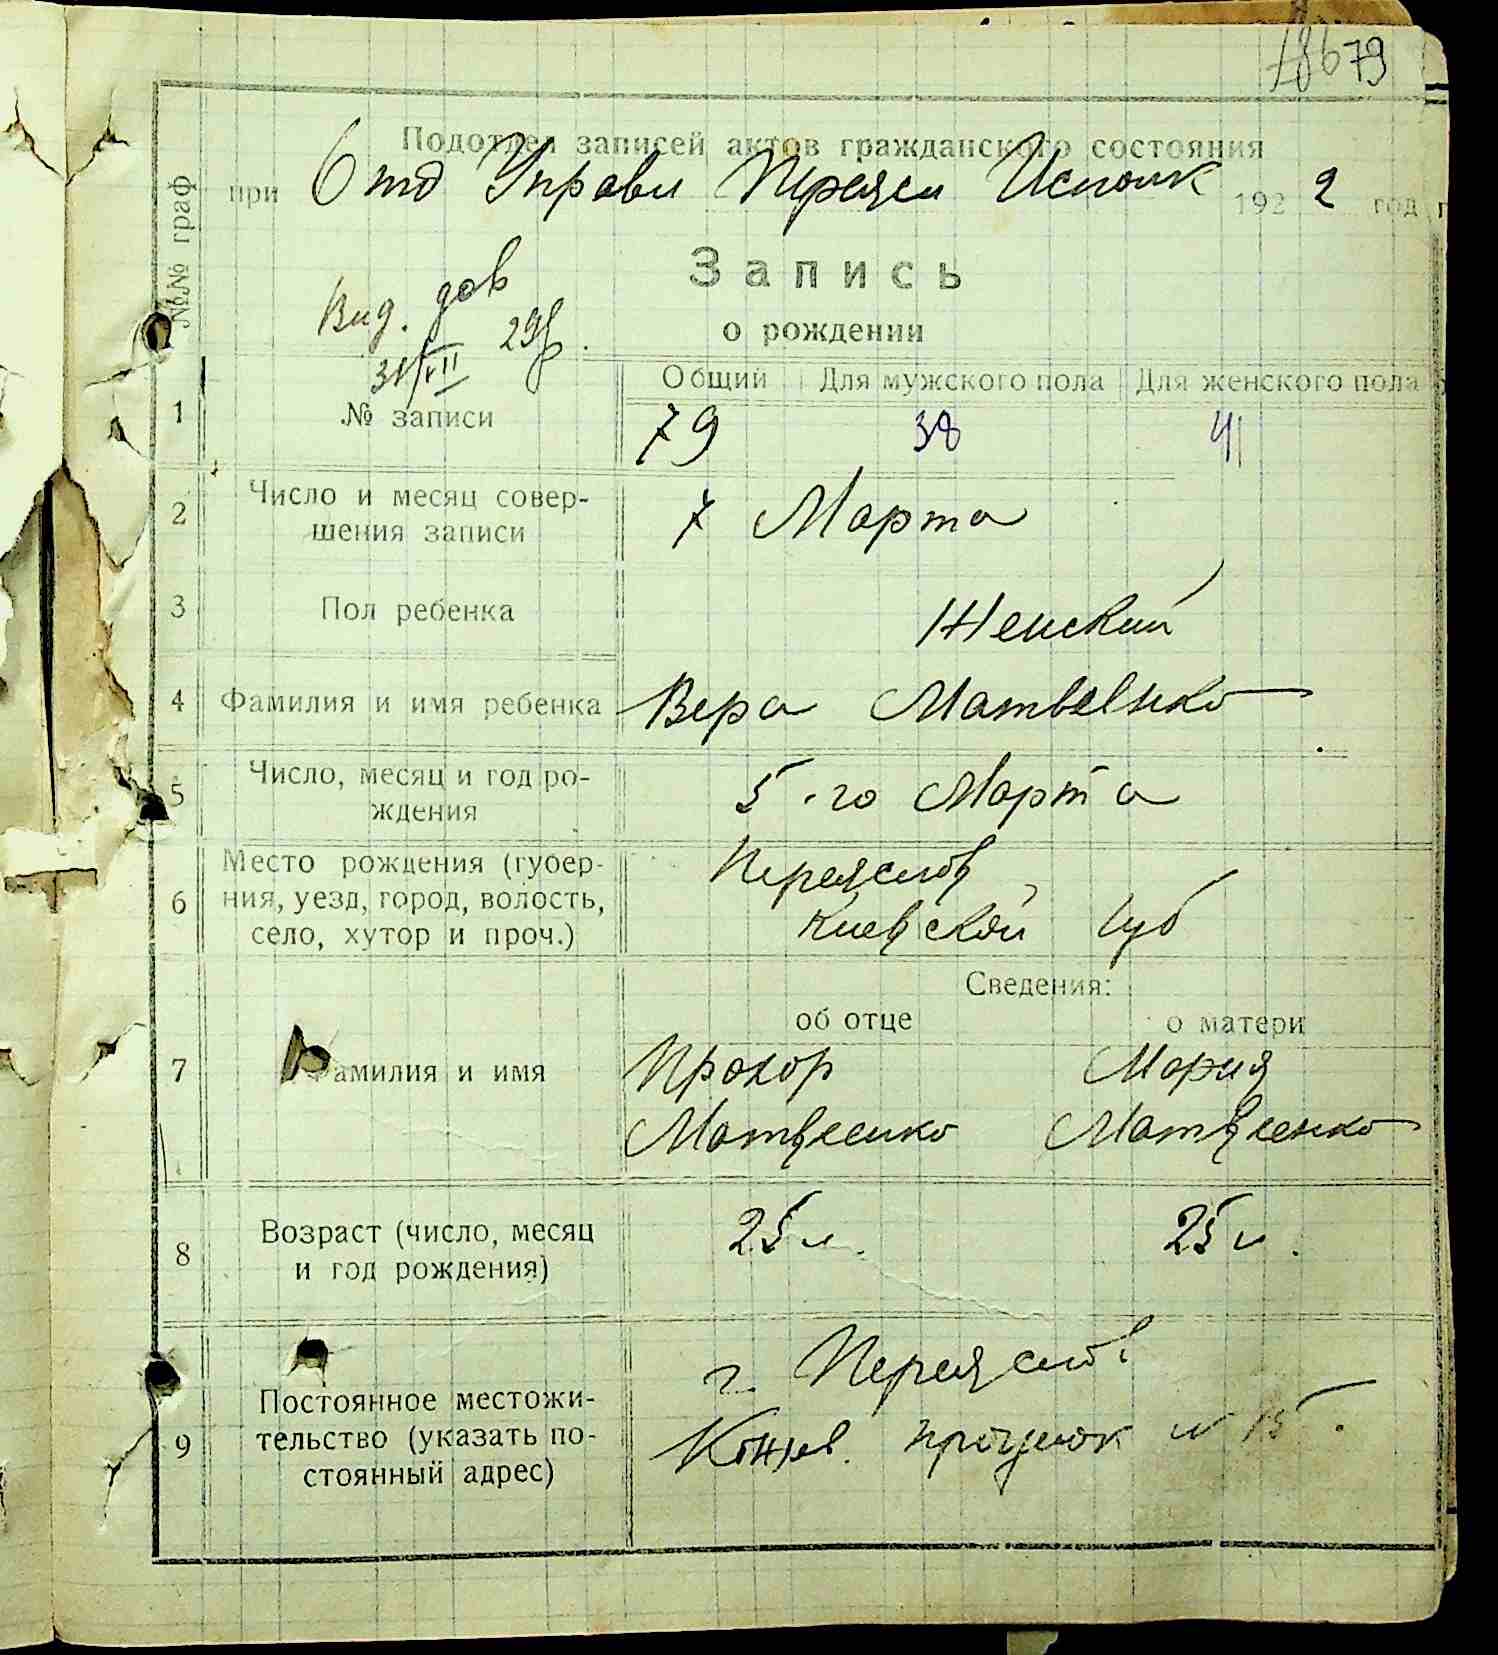 79
Подотдел записей актов гражданского состояния
при Отд Управл Переясл Исполк 1922 год
Запись
о рождении
Вид. дов
31/VII 29р.
№№ граф
Общий Для мужского пола Для женского пола
1 № записи 79 38 41
2 Число и месяц совер-
шения записи 7 Марта
3 Пол ребенка Женский
4 Фамилия и имя ребенка Вера Матвеенко
5 Число, месяц и год ро-
ждения 5-го Марта
6 Место рождения (губер-
ния, уезд, город, волость,
село, хутор и проч.) Переяслов
Киевской губ
Сведения:
об отце о матери
7 Фамилия и имя Прохор Мария
Матвеенко Матвеенко
8 Возраст (число, месяц
и год рождения) 25 л. 25 л.
9 Постоянное местожи-
тельство (указать по-
стоянный адрес) г. Переяслов
№ 15.